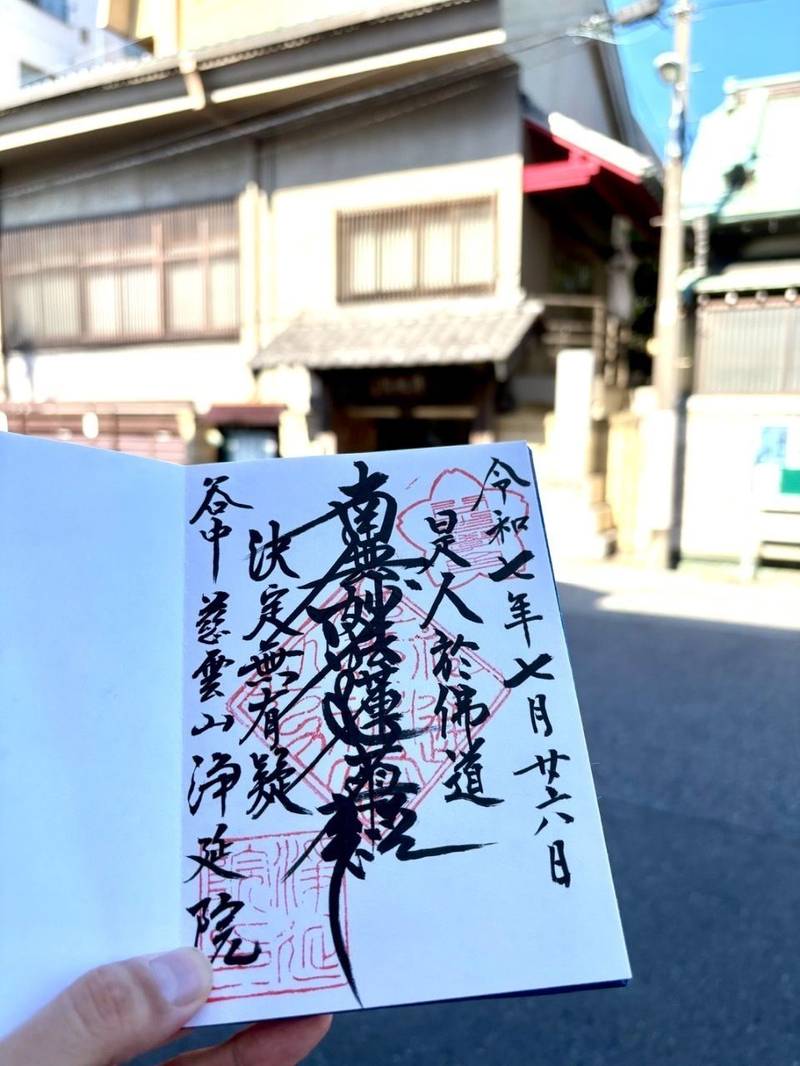 令和七年七月廿六日
是人於佛道
南無妙法蓮華経
決定無有疑
谷中 慈雲山 浄延院